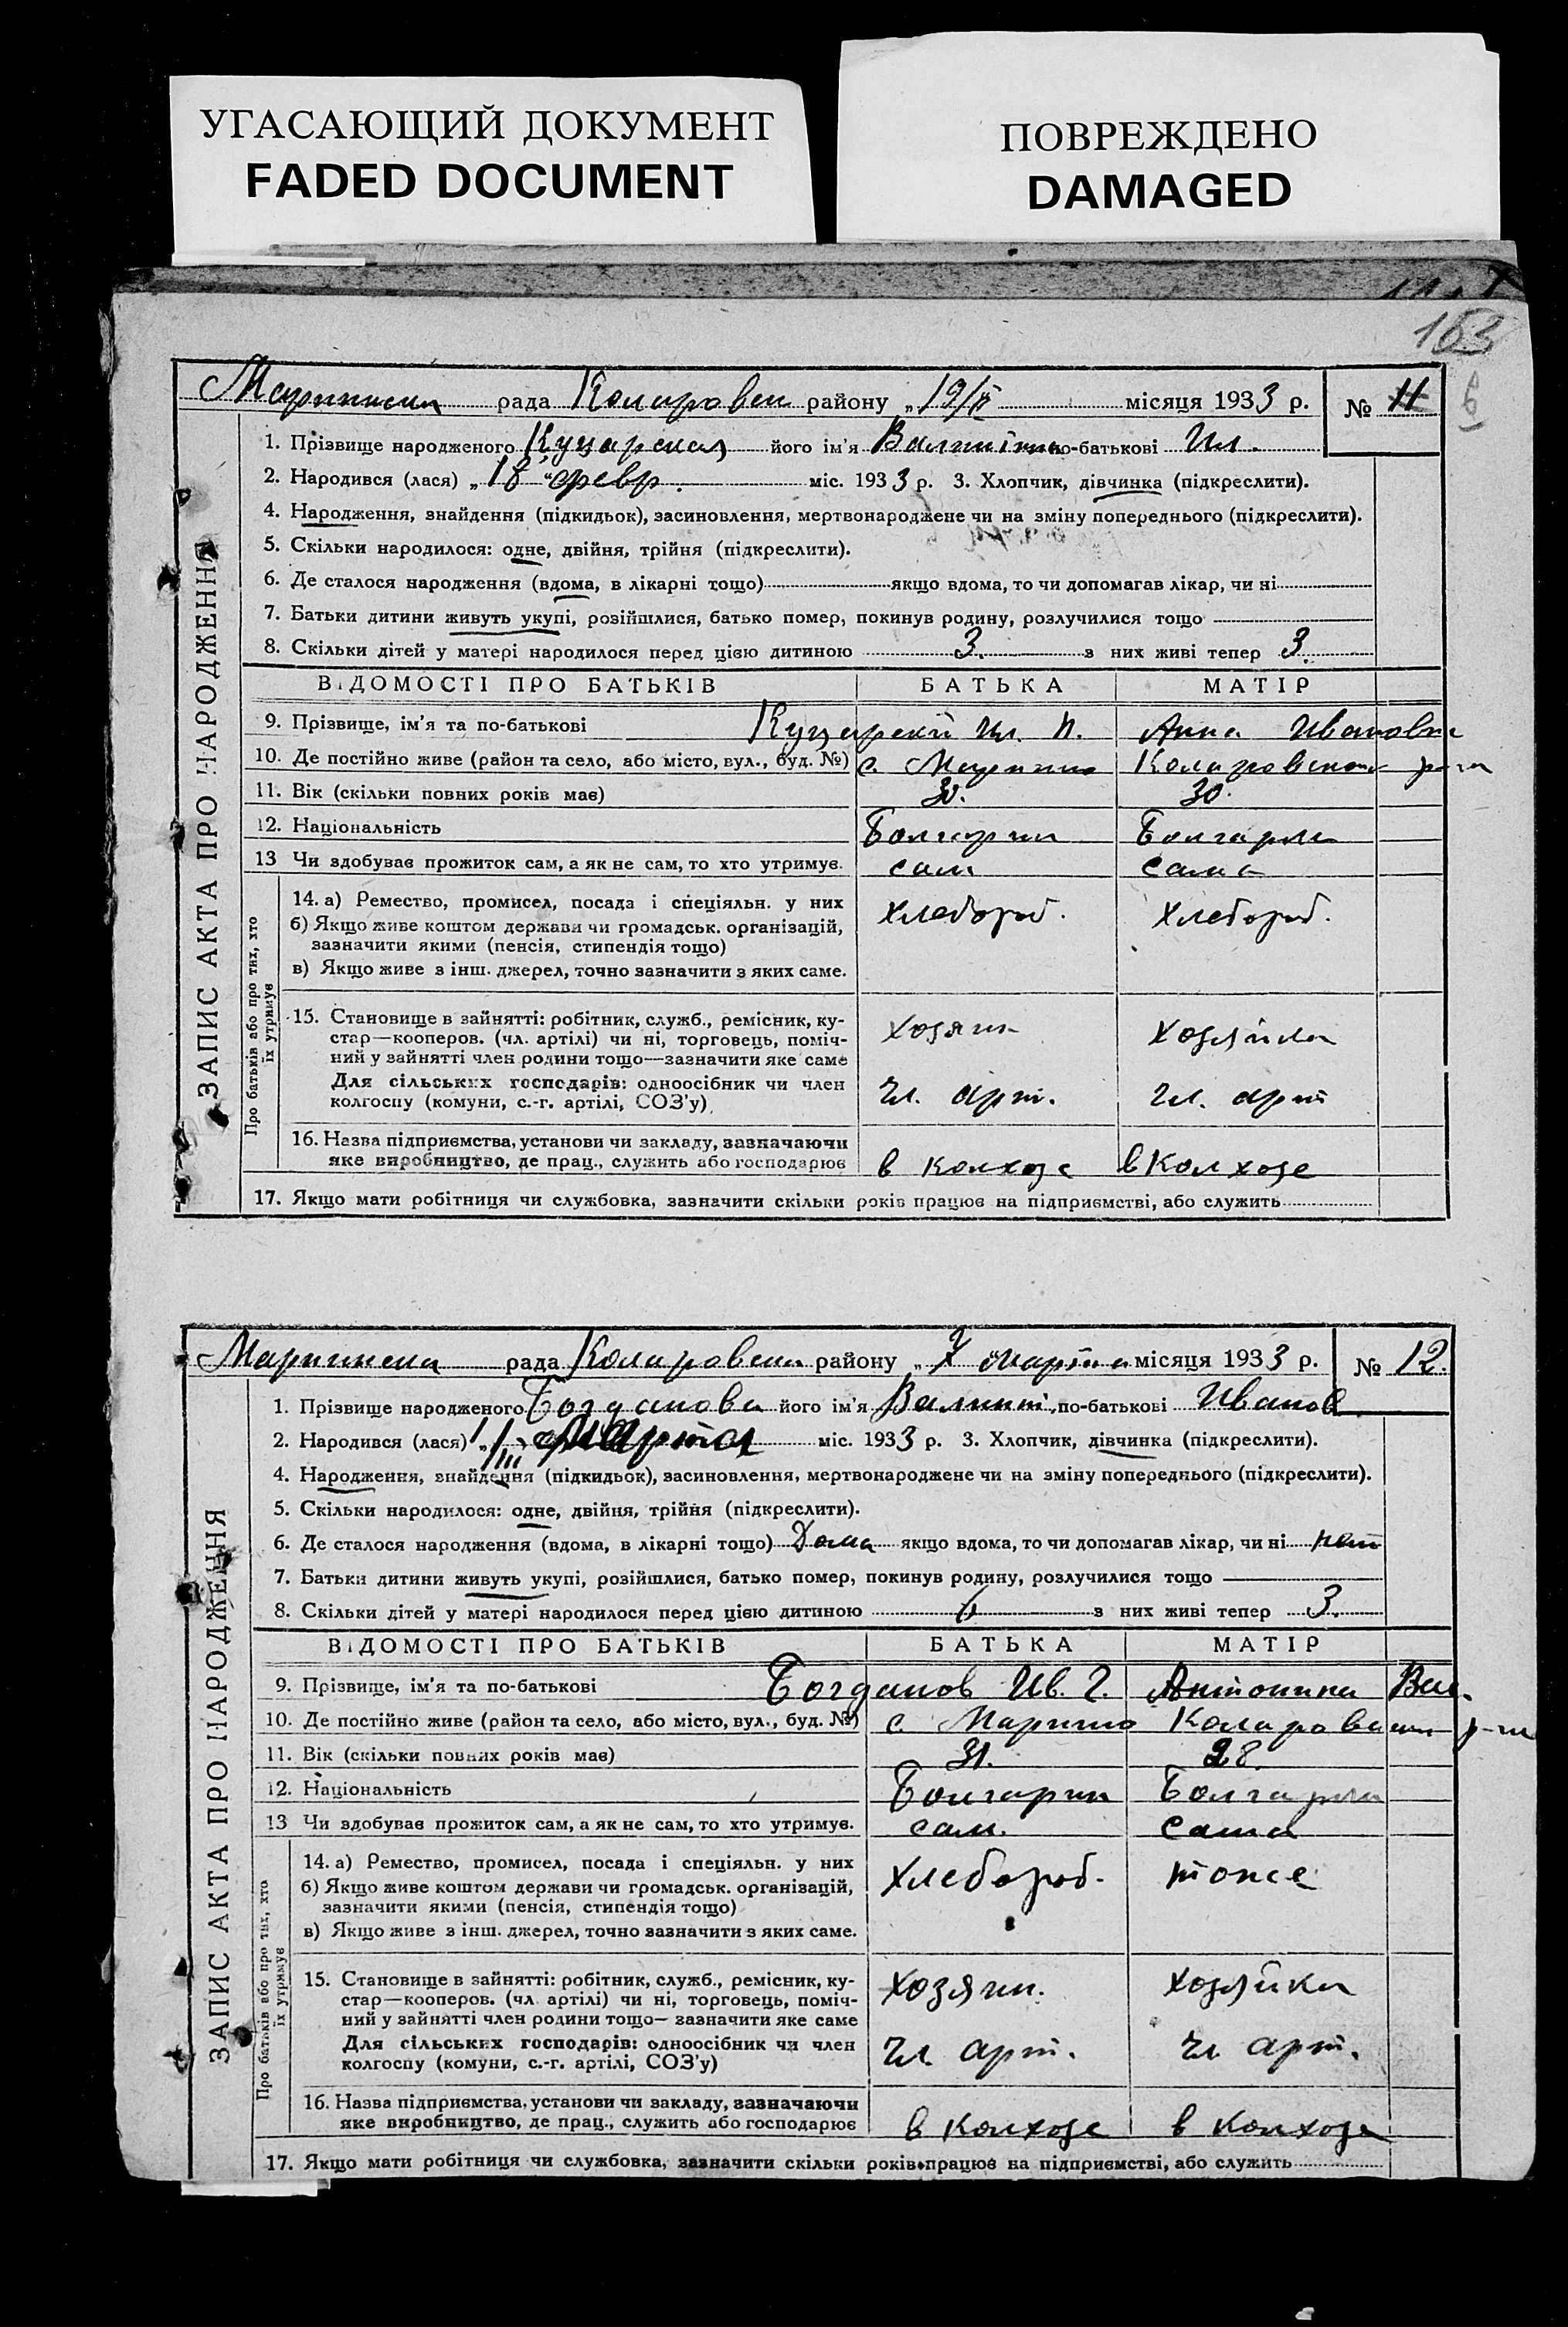 УГАСАЮЩИЙ ДОКУМЕНТ
FADED DOCUMENT
ПОВРЕЖДЕНО
DAMAGED
163
рада Коларовск району „19/II місяця 1933 р. № 11
1. Прізвище народженого Куцарская його ім'я Валинтина по-батькові Ил.
2. Народився (лася) „18 “ февр. міс. 1933 р. 3. Хлопчик, дівчинка (підкреслити).
4. Народження, знайдення (підкидьок), засиновлення, мертвонароджене чи на зміну попереднього (підкреслити).
5. Скільки народилося: одне, двійня, трійня (підкреслити).
6. Де сталося народження (вдома, в лікарні тощо) якщо вдома, то чи допомагав лікар, чи ні
7. Батьки дитини живуть укупі, розійшлися, батько помер, покинув родину, розлучилися тощо
8. Скільки дітей у матері народилося перед цією дитиною 3. з них живі тепер 3.
ВІДОМОСТІ ПРО БАТЬКІВ БАТЬКА МАТІР
9. Прізвище, ім'я та по-батькові Куцарский Ил. П. Анна Ивановна
10. Де постійно живе (район та село, або місто, вул., буд. №) с. Марьино Коларовского р-на
11. Вік (скільки повних років має) 30. 30.
12. Національність Болгарин Болгарка
13 Чи здобуває прожиток сам, а як не сам, то хто утримує. сам сама
14. а) Ремество, промисел, посада і спеціяльн. у них хлебороб. хлебороб.
б) Якщо живе коштом держави чи громадськ. організацій,
зазначити якими (пенсія, стипендія тощо)
в) Якщо живе з інш. джерел, точно зазначити з яких саме.
15. Становище в зайнятті: робітник, служб., ремісник, ку-
стар—кооперов. (чл. артілі) чи ні, торговець, поміч- хозяин хозяйка
ний у зайнятті член родини тощо—зазначити яке саме
Для сільських господарів: одноосібник чи член
колгоспу (комуни, с.-г. артілі, СОЗ'у) чл. арт. чл. арт
16. Назва підприємства, установи чи закладу, зазначаючи
яке виробництво, де прац., служить або господарює в колхозе в колхозе
17. Якщо мати робітниця чи службовка, зазначити скільки років працює на підприємстві, або служить
ЗАПИС АКТА ПРО НАРОДЖЕННЯ
Про батьків або про тих, хто
їх утримує
рада Коларовск району „7 марта місяця 1933 р. № 12.
1. Прізвище народженого Богданова його ім'я Валинт. по-батькові Иванов
2. Народився (лася) „1 марта міс. 1933 р. 3. Хлопчик, дівчинка (підкреслити).
4. Народження, знайдення (підкидьок), засиновлення, мертвонароджене чи на зміну попереднього (підкреслити).
5. Скільки народилося: одне, двійня, трійня (підкреслити).
6. Де сталося народження (вдома, в лікарні тощо) Дома якщо вдома, то чи допомагав лікар, чи ні нет
7. Батьки дитини живуть укупі, розійшлися, батько помер, покинув родину, розлучилися тощо
8. Скільки дітей у матері народилося перед цією дитиною 6 з них живі тепер 3.
ВІДОМОСТІ ПРО БАТЬКІВ БАТЬКА МАТІР
9. Прізвище, ім'я та по-батькові Богданов Ив. Г. Антонина Вас.
10. Де постійно живе (район та село, або місто, вул., буд. №) с. Марьино р-на
11. Вік (скільки повних років має) 31. 28.
12. Національність Болгарин Болгарка
13 Чи здобуває прожиток сам, а як не сам, то хто утримує. сам. сама
14. а) Ремество, промисел, посада і спеціяльн. у них хлебороб. тоже
б) Якщо живе коштом держави чи громадськ. організацій,
зазначити якими (пенсія, стипендія тощо)
в) Якщо живе з інш. джерел, точно зазначити з яких саме.
15. Становище в зайнятті: робітник, служб., ремісник, ку-
стар—кооперов. (чл. артілі) чи ні, торговець, поміч- хозяин. хозяйка
ний у зайнятті член родини тощо— зазначити яке саме
Для сільських господарів: одноосібник чи член
колгоспу (комуни, с.-г. артілі, СОЗ'у) чл. арт. чл арт.
16. Назва підприємства, установи чи закладу, зазначаючи
яке виробництво, де прац., служить або господарює в колхозе в колхозе
17. Якщо мати робітниця чи службовка, зазначити скільки років працює на підприємстві, або служить
ЗАПИС АКТА ПРО НАРОДЖЕННЯ
Про батьків або про тих, хто
їх утримує